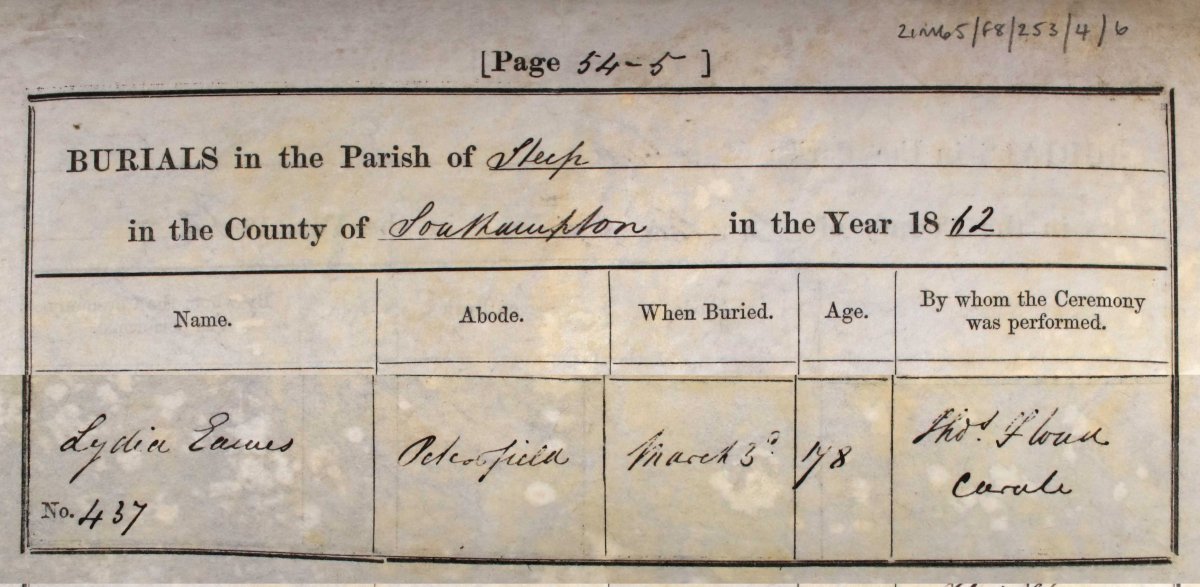 21M65/F8/253/4/6
[Page 54-5 ]
BURIALS in the Parish of Steep
in the County of Southampton in the Year 1862
Name. Abode. When Buried. Age. By whom the Ceremony
was performed.
Lydia Eames Petersfield March 3d 78 Thos.
Curate
No. 437